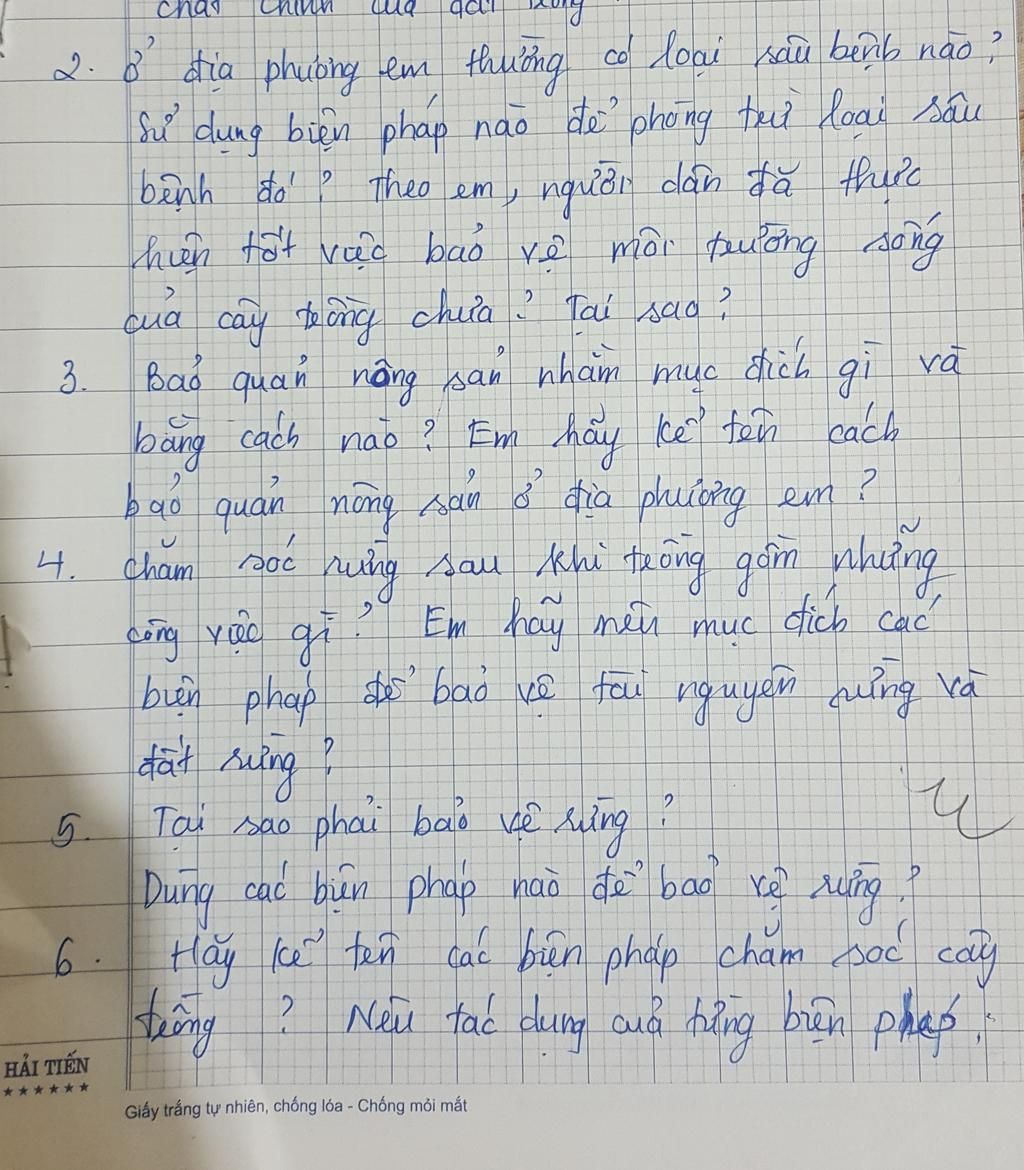 chất chính của đất trồng
2. Ở địa phương em thường có loại sâu bệnh nào?
Sử dụng biện pháp nào để phòng trừ loại sâu
bệnh đó? Theo em, người dân đã thực
hiện tốt việc bảo vệ môi trường sống
của cây trồng chưa? Tại sao?
3. Bảo quản nông sản nhằm mục đích gì và
bằng cách nào? Em hãy kể tên cách
bảo quản nông sản ở địa phương em?
4. Chăm sóc rừng sau khi trồng gồm những
công việc gì? Em hãy nêu mục đích các
biện pháp để bảo vệ tài nguyên rừng và
đất rừng?
5. Tại sao phải bảo vệ rừng?
Dùng các biện pháp nào để bảo vệ rừng?
6. Hãy kể tên các biện pháp chăm sóc cây
trồng? Nêu tác dụng của từng biện pháp.
HẢI TIẾN
Giấy trắng tự nhiên, chống lóa - Chống mỏi mắt